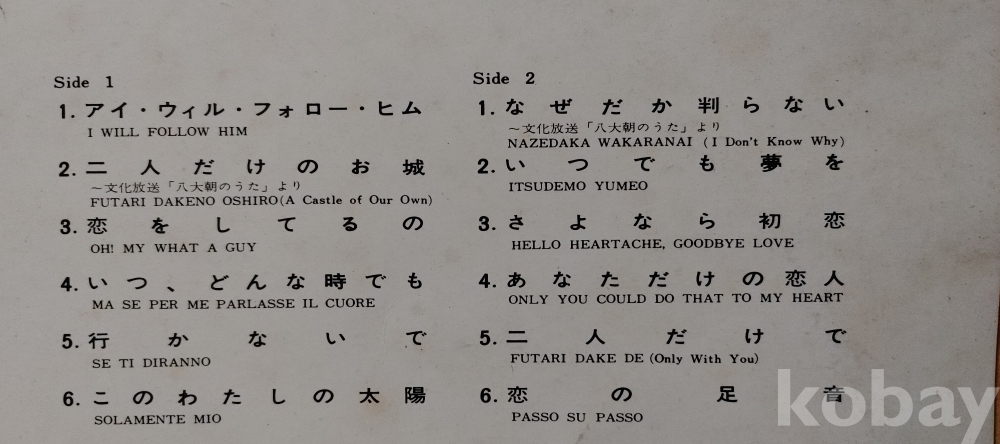 Side 1
1. アイ・ウィル・フォロー・ヒム
I WILL FOLLOW HIM
2. 二人だけのお城
～文化放送「八大朝のうた」より
FUTARI DAKENO OSHIRO (A Castle of Our Own)
3. 恋をしてるの
OH! MY WHAT A GUY
4. いつ、どんな時でも
MA SE PER ME PARLASSE IL CUORE
5. 行かないで
SE TI DIRANNO
6. このわたしの太陽
SOLAMENTE MIO
Side 2
1. なぜだか判らない
～文化放送「八大朝のうた」より
NAZEDAKA WAKARANAI (I Don't Know Why)
2. いつでも夢を
ITSUDEMO YUMEO
3. さよなら初恋
HELLO HEARTACHE, GOODBYE LOVE
4. あなただけの恋人
ONLY YOU COULD DO THAT TO MY HEART
5. 二人だけで
FUTARI DAKE DE (Only With You)
6. 恋の足音
PASSO SU PASSO
kobay